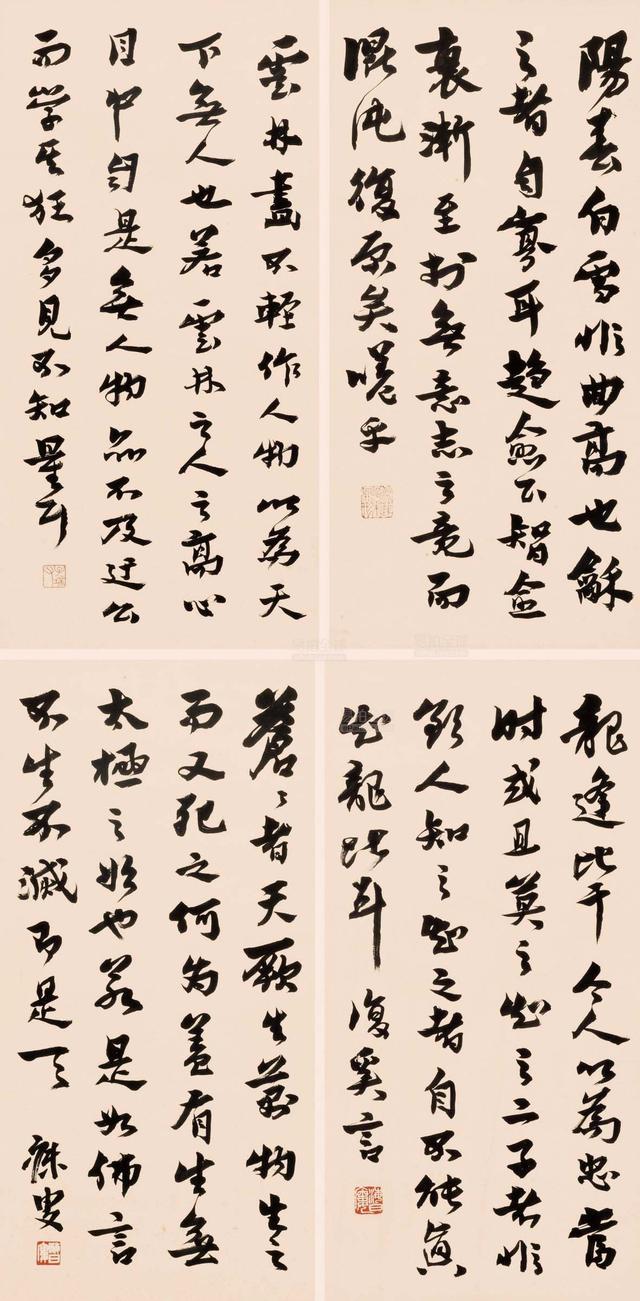 陽春白雪非曲高也龢
之者自寡耳趨愈下智愈
衰漸至於無意志之竟而
混沌復原矣嗟乎
雲林畫不輕作人物以為天
下無人也若雲林之人之高心
目中自是無人物品不及迂公
而學其狂多見不知量耳
龍逢比干今人以為忠當
時或且莫之知之二子者非
欲人知之知之者自不能真
知龍比耳 復奚言
蒼々者天厥生萬物生之
而又死之何為蓋有生無
太極之始也若是如佛言
不生不滅即是天 叟